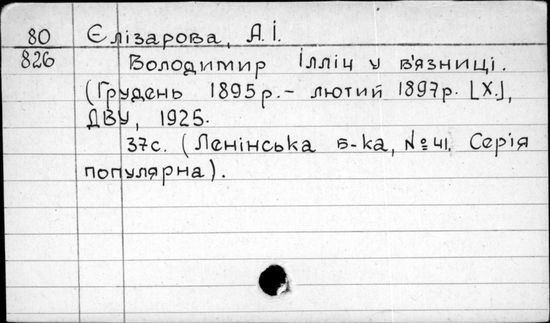 80 Єлізарова, А.І.
826 Володимир Ілліч у в'язниці.
(Грудень 1895р.- лютий 1897р. [Х.],
ДВУ, 1925.
37с. (Ленінська б-ка, №41. Серія
популярна).